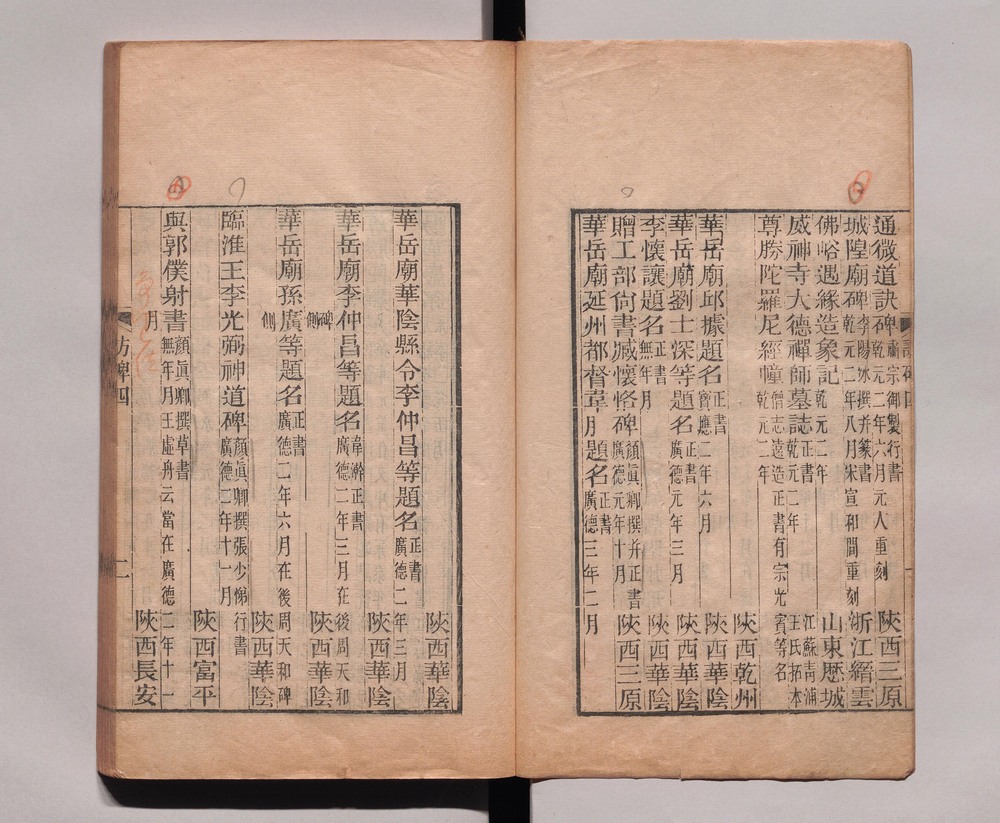 通微道訣碑 肅宗御製行書 乾元二年六月元人重刻 陝西三原
城隍廟碑 李陽冰撰并篆書 乾元二年八月宋宣和間重刻 浙江縉雲
佛峪遇緣造象記 乾元二年 山東歷城
威神寺大德禪師墓誌 正書 乾元二年 江蘇青浦王氏拓本
尊勝陀羅尼經幢 僧志遠造正書有宗光賓等名 乾元二年
陝西乾州
華岳廟邱據題名 正書 寶應二年六月 陝西華陰
華岳廟劉士深等題名 正書 廣德元年三月 陝西華陰
李懷讓題名 正書 無年月 陝西華陰
贈工部尙書臧懷恪碑 顏眞卿撰并正書 廣德元年十月 陝西三原
華岳廟延州都督韋月題名 正書 廣德三年二月
陝西華陰
華岳廟華陰縣令李仲昌等題名 正書 廣德二年三月
陝西華陰
華岳廟李仲昌等題名 韋澣正書 廣德二年三月在後周天和
碑側 陝西華陰
華岳廟孫廣等題名 正書 廣德二年六月在後周天和碑
側 陝西華陰
臨淮王李光弼神道碑 顏眞卿撰張少悌行書 廣德二年十一月
陝西富平
與郭僕射書 顏眞卿撰草書 無年月王虛舟云當在廣德二年十一
月 陝西長安
訪碑四 二